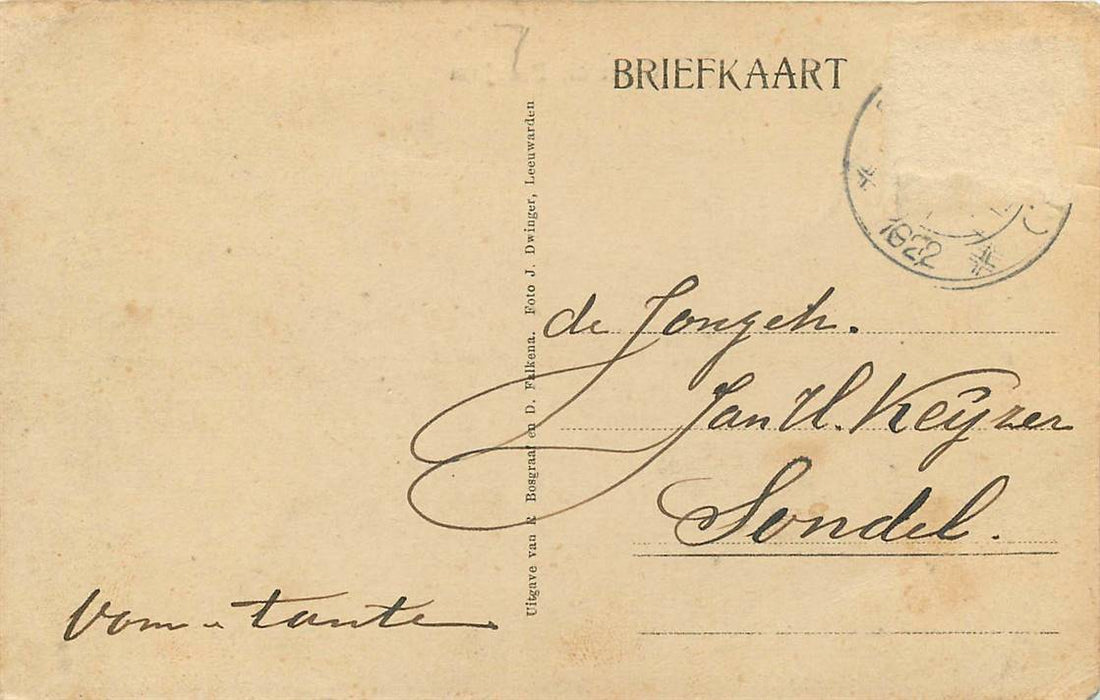 BRIEFKAART
1922
de Jongeh.
Jan H. Keÿzer
Sondel.
Uitgave van R. Bosgraaf en D. Falkena. Foto J. Dwinger, Leeuwarden
tante